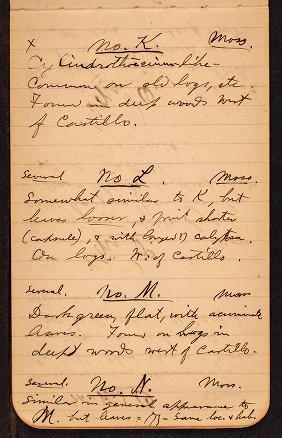 x No. K. Moss.
Cylindrothecium like -
Common on old logs, etc.
Found in deep woods west
of Castillo.
Several No L. Moss.
Somewhat similar to K, but
leaves looser, & fruit shorter
(capsule), & with longer(?) calyptra.
On logs. W. of Castillo.
Several. No. M. Moss
Dark green, flat, with acuminate
leaves. Found on logs in
deep woods west of Castillo.
Several. No. N. Moss.
Similar in general appearance to
M. but leaves = Same loc. & hab.